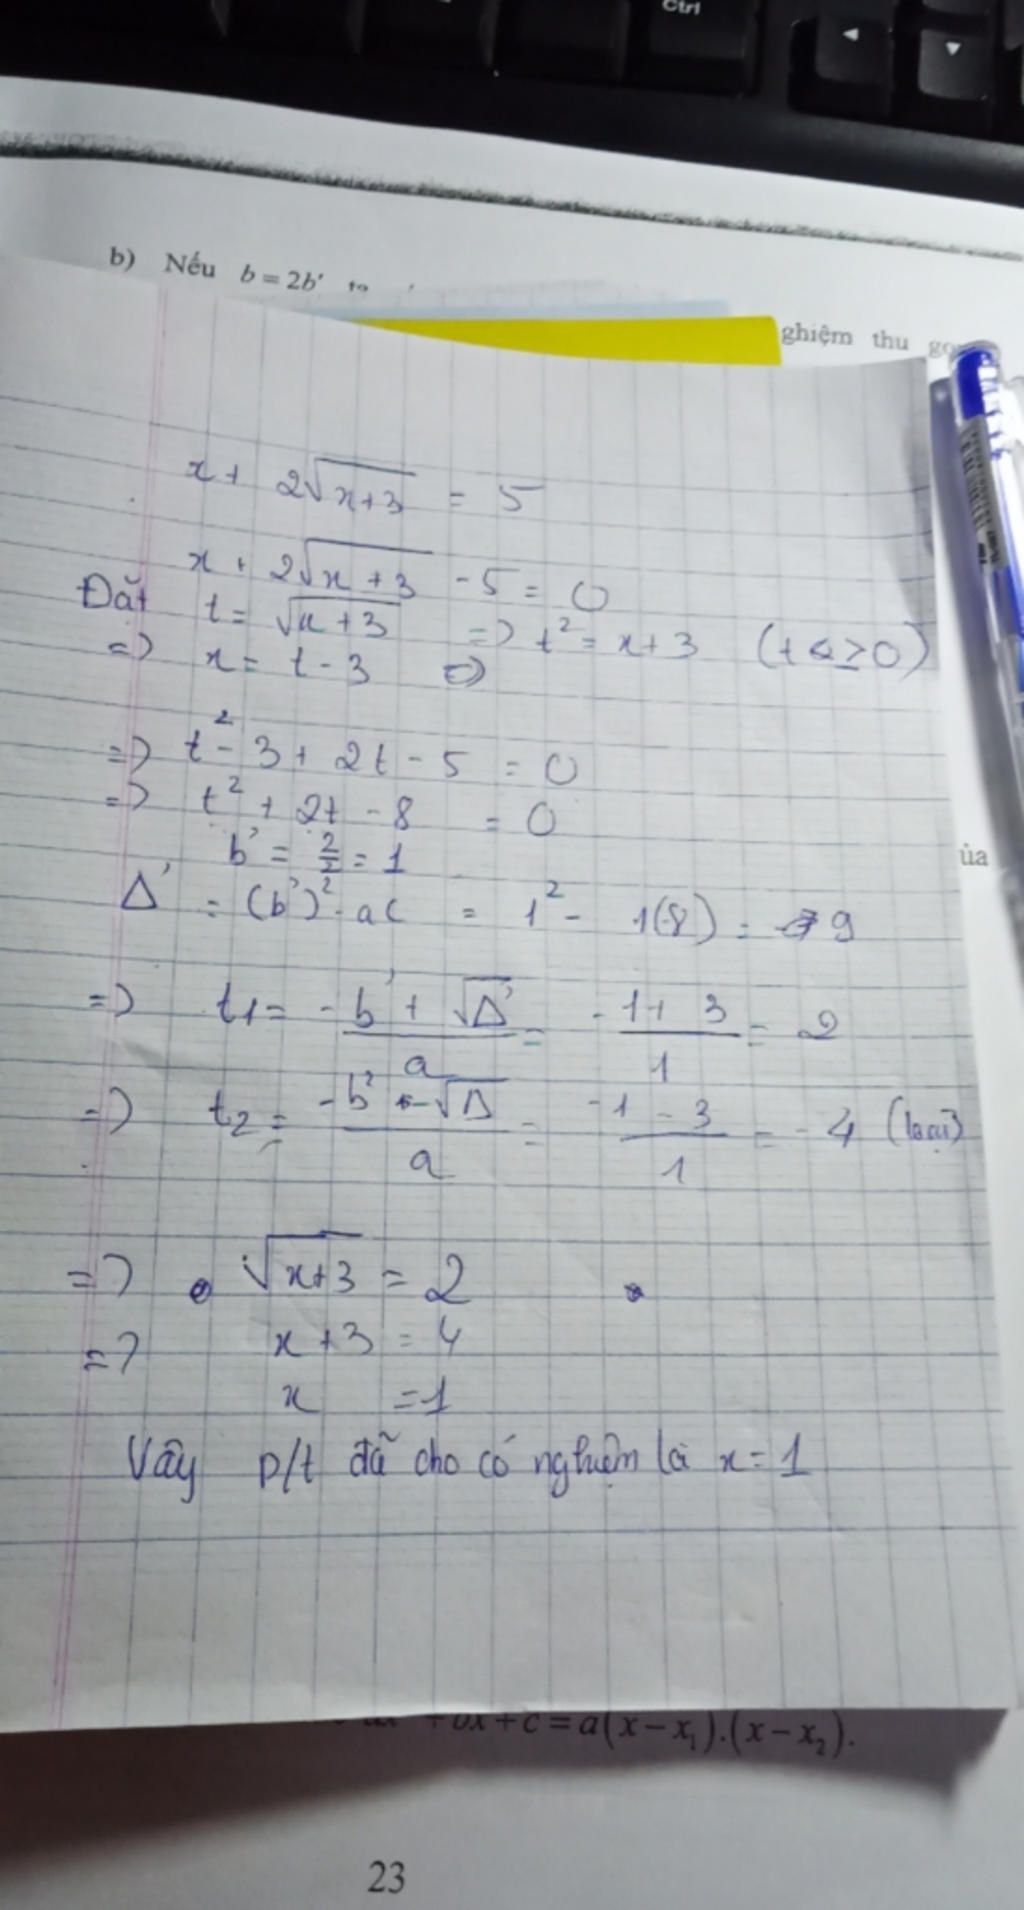 Ctrl
b) Nếu b = 2b'
ghiệm thu gọ
x + 2√(x+3) = 5
x + 2√(x+3) - 5 = 0
Đặt t = √(x+3) => t² = x+3 (t ≥ 0)
=> x = t - 3 <=>
=> t² - 3 + 2t - 5 = 0
=> t² + 2t - 8 = 0
b' = 2/2 = 1
ủa
Δ' = (b')² - ac = 1² - 1(-8) = 9
=> t1 = (-b' + √Δ')/a = (-1 + 3)/1 = 2
=> t2 = (-b' - √Δ)/a = (-1 - 3)/1 = -4 (loại)
=> √(x+3) = 2
=> x + 3 = 4
x = 1
Vậy p/t đã cho có nghiệm là x = 1
+ bx + c = a(x - x₁).(x - x₂).
23